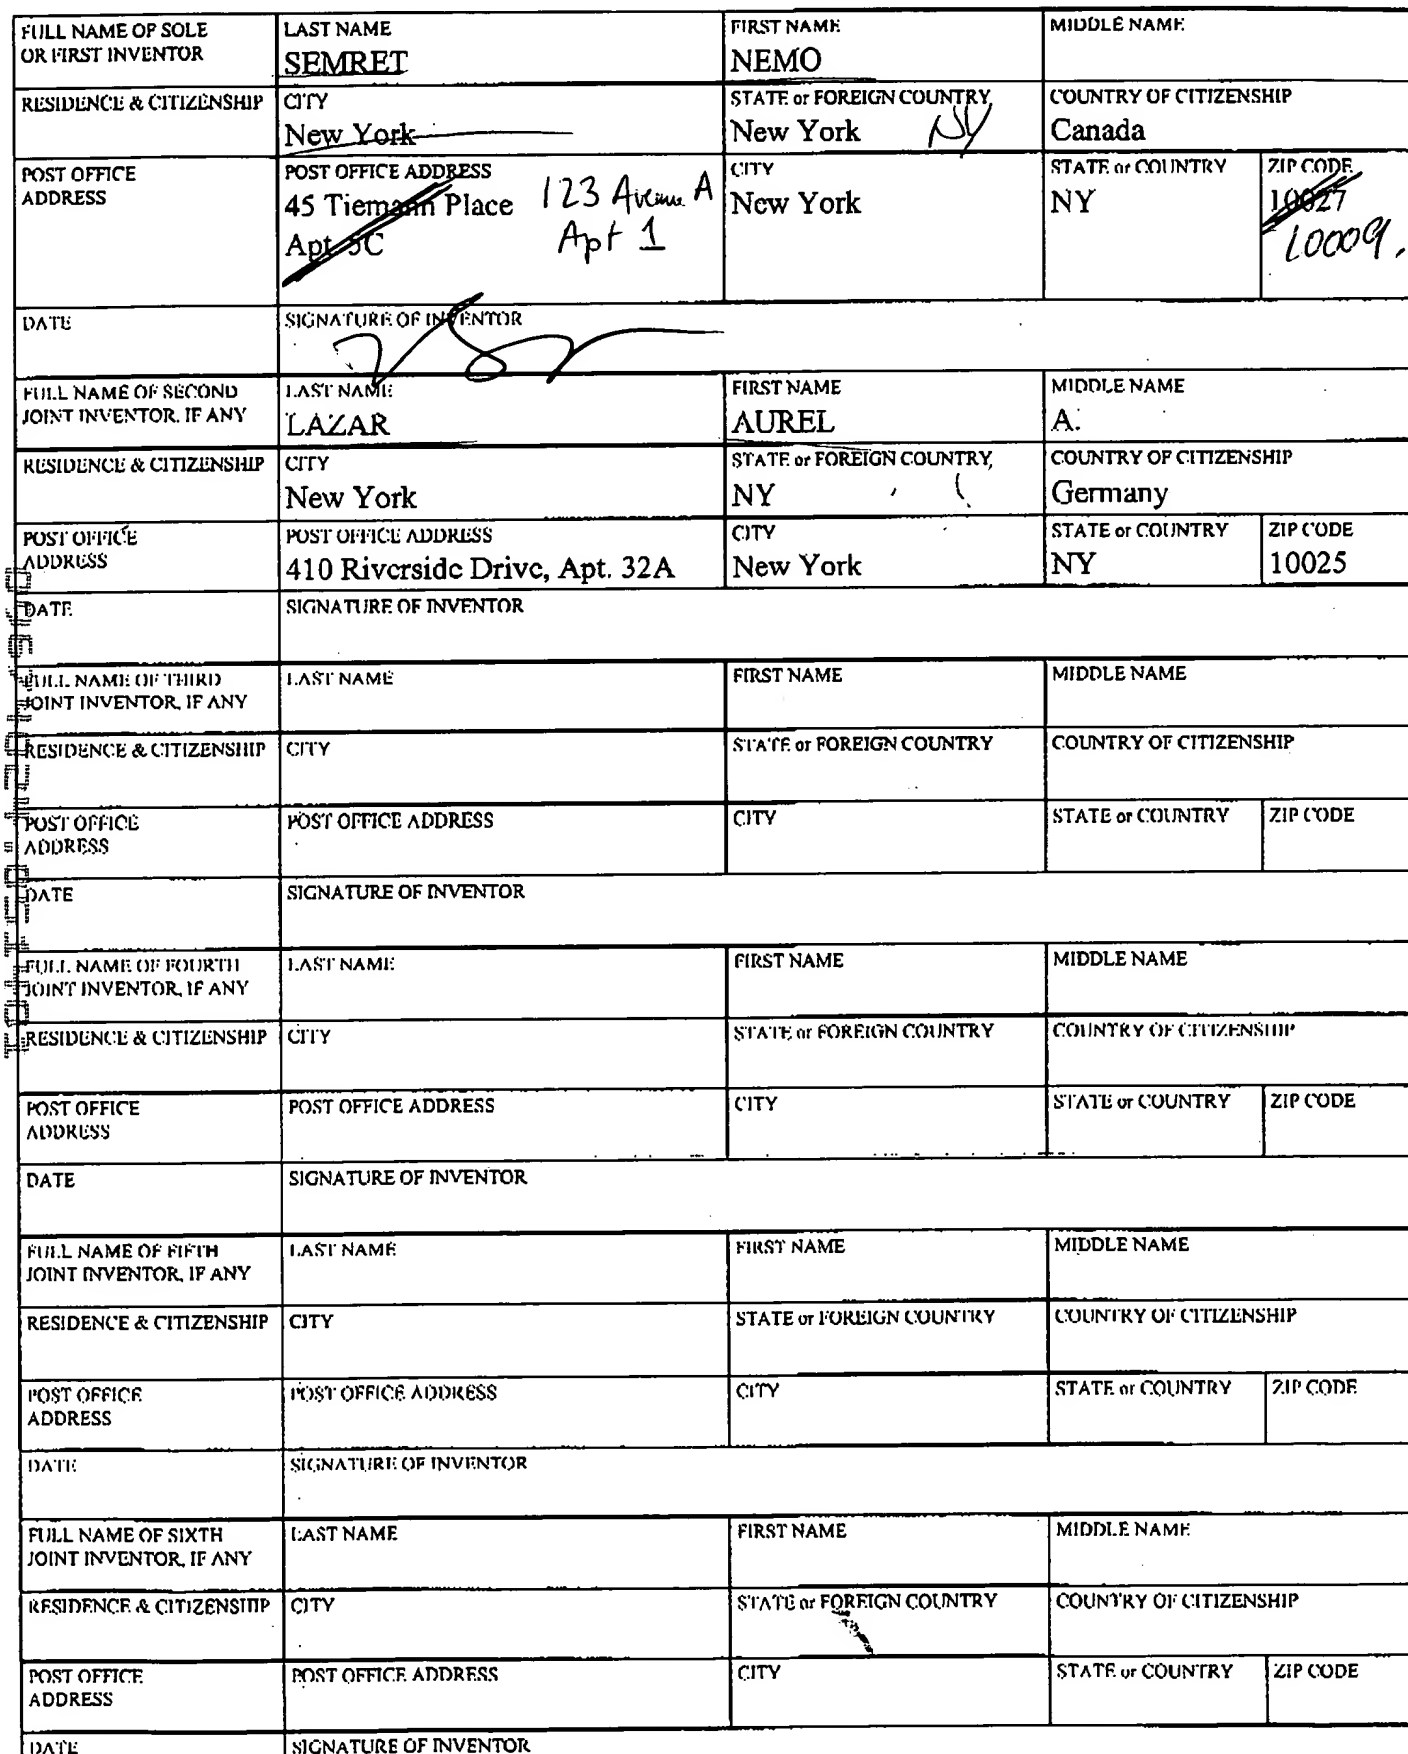 FULL NAME OF SOLE OR FIRST INVENTOR
LAST NAME
SEMRET
FIRST NAME
NEMO
MIDDLE NAME
RESIDENCE & CITIZENSHIP
CITY
New York
STATE or FOREIGN COUNTRY
New York NY
COUNTRY OF CITIZENSHIP
Canada
POST OFFICE ADDRESS
POST OFFICE ADDRESS
45 Tiemann Place 123 Avenue A
Apt 5C Apt 1
CITY
New York
STATE or COUNTRY
NY
ZIP CODE
10027
10009.
DATE
SIGNATURE OF INVENTOR
FULL NAME OF SECOND JOINT INVENTOR, IF ANY
LAST NAME
LAZAR
FIRST NAME
AUREL
MIDDLE NAME
A.
RESIDENCE & CITIZENSHIP
CITY
New York
STATE or FOREIGN COUNTRY
NY
COUNTRY OF CITIZENSHIP
Germany
POST OFFICE ADDRESS
POST OFFICE ADDRESS
410 Riverside Drive, Apt. 32A
CITY
New York
STATE or COUNTRY
NY
ZIP CODE
10025
DATE
SIGNATURE OF INVENTOR
FULL NAME OF THIRD JOINT INVENTOR, IF ANY
LAST NAME
FIRST NAME
MIDDLE NAME
RESIDENCE & CITIZENSHIP
CITY
STATE or FOREIGN COUNTRY
COUNTRY OF CITIZENSHIP
POST OFFICE ADDRESS
POST OFFICE ADDRESS
CITY
STATE or COUNTRY
ZIP CODE
DATE
SIGNATURE OF INVENTOR
FULL NAME OF FOURTH JOINT INVENTOR, IF ANY
LAST NAME
FIRST NAME
MIDDLE NAME
RESIDENCE & CITIZENSHIP
CITY
STATE or FOREIGN COUNTRY
COUNTRY OF CITIZENSHIP
POST OFFICE ADDRESS
POST OFFICE ADDRESS
CITY
STATE or COUNTRY
ZIP CODE
DATE
SIGNATURE OF INVENTOR
FULL NAME OF FIFTH JOINT INVENTOR, IF ANY
LAST NAME
FIRST NAME
MIDDLE NAME
RESIDENCE & CITIZENSHIP
CITY
STATE or FOREIGN COUNTRY
COUNTRY OF CITIZENSHIP
POST OFFICE ADDRESS
POST OFFICE ADDRESS
CITY
STATE or COUNTRY
ZIP CODE
DATE
SIGNATURE OF INVENTOR
FULL NAME OF SIXTH JOINT INVENTOR, IF ANY
LAST NAME
FIRST NAME
MIDDLE NAME
RESIDENCE & CITIZENSHIP
CITY
STATE or FOREIGN COUNTRY
COUNTRY OF CITIZENSHIP
POST OFFICE ADDRESS
POST OFFICE ADDRESS
CITY
STATE or COUNTRY
ZIP CODE
DATE
SIGNATURE OF INVENTOR